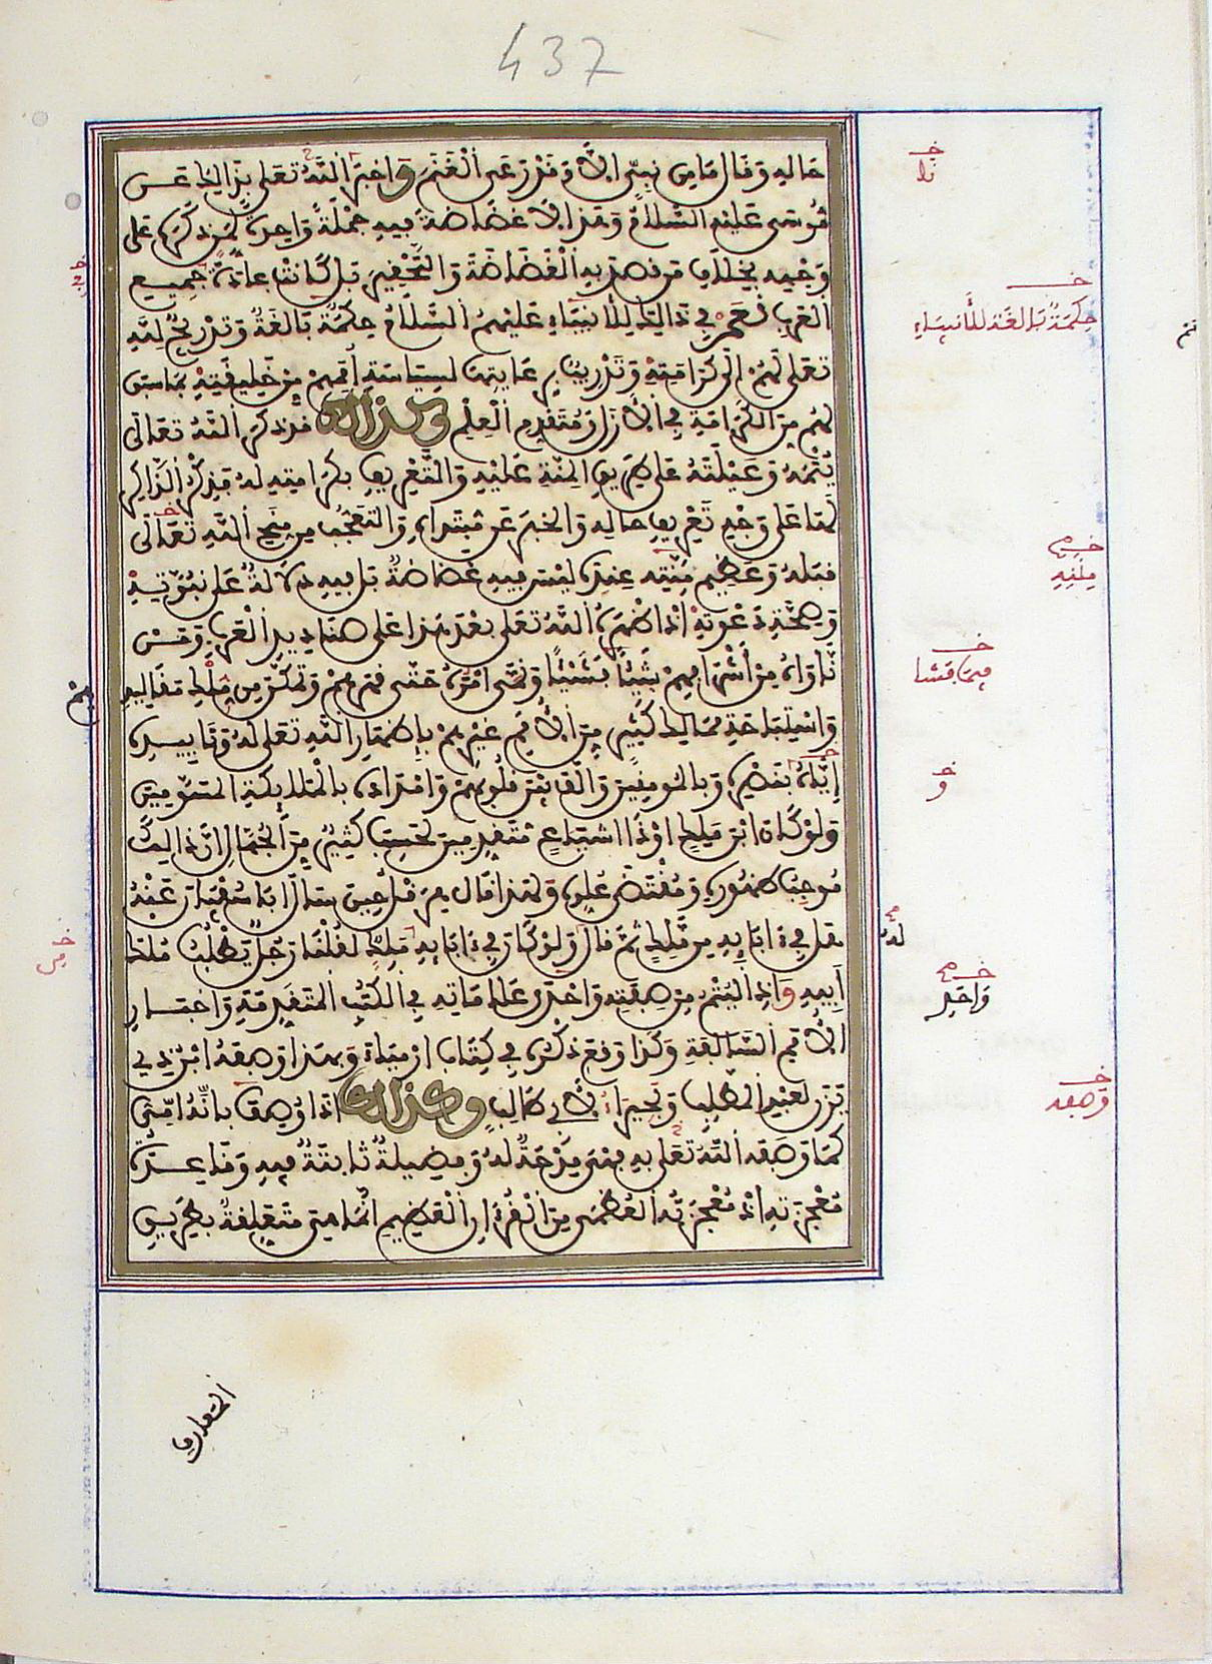 437
حاله وقال ما من نبي الا وقد رعى الغنم واخبرنا الله تعلى بذالك عن
موسى عليه السلام وهذا لا غضاضة فيه جملة واحدة لمن ذكره على
وجهه بخلاف من قصد به الغضاضة والتحقير بل كانت عادة جميع
العرب نعم في ذالك للأنبياء عليهم السلام حكمة بالغة وتدريج لله
تعلى لهم الى كرامته وتدريب برعايتها لسياسة أممهم من خليقته بما سبق
لهم من الكرامة في الأزل ومتقدم العلم وكذالك قد ذكر الله تعالى
يتمه وعيلته على طريق المنة عليه والتعريف بكرامته له فذكر الذاكر
لها على وجه تعريف حاله والخبر عن مبتدإه والتعجب من منح الله تعالى
قبله وعظيم منته عنده ليس فيه غضاضة بل فيه دلالة على نبوته
وصحة دعوته اذ اظهره الله تعلى بعد هذا على صناديد العرب ومن
ناواه من أشرافهم شيئا فشيئا ونمى امره حتى قهرهم وتمكن من ملك مقاليدهم
واستباحة ممالك كثير من الأمم غيرهم بإظهار الله تعلى له وتاييده
إياه بنصره وبالمومنين والف بين قلوبهم وامداده بالملايكة المسومين
ولو كان ابن ملك او ذا اشياع متقدمين لحسب كثير من الجهال ان ذالك
موجب ظهوره ومقتضى علوه ولهذا قال هرقل حين سال ابا سفيان عنه
هل في ءابايه من ملك ثم قال ولو كان في ءابايه ملك لقلنا رجل يطلب ملك
أبيه واذ اليتم من صفته واحدى علاماته في الكتب المتقدمة واخبار
الأمم السالفة وكذا وقع ذكره في كتاب ارمياء وبهذا وصفه ابن ذي
يزن لعبد المطلب وبحيراء لأبي طالب وكذالك اذا وصف بانه امي
كما وصفه الله تعلى به فهي مدحة له وفضيلة ثابتة فيه وقاعدة
معجزته اذ معجزته العظمى من القرءان العظيم انما هي متعلقة بطريق
المعارف
خـ
نا
خـ
حكمة بالغة للأنبياء
خـ
خـ
خـ
و
له
خـ
واحد
خـ
وصفه
خـ
من